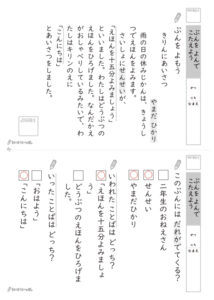 ぶんをよんで
こたえよう。
ぶんを よもう
きりんにあいさつ
やまだ ひかり
雨の日の休みじかんは、きょうしつでえほんをよみます。
さいしょにせんせいが、
「えほんを十五分よみましょう」
といいました。わたしはどうぶつのえほんをひろげました。なんだかえがおしゃべりしているみたいで、わたしはキリンのえに
「こんにちは」
とあいさつをしました。
ぶんをよんで
こたえよう。
このぶんには だれがでてくる?
二年生のおねえさん
せんせい
やまだひかり
いわれた ことばは どっち?
「えほんを十五分よみましょう」
どうぶつのえほんをひろげました。
いった ことばは どっち?
「おはよう」
「こんにちは」